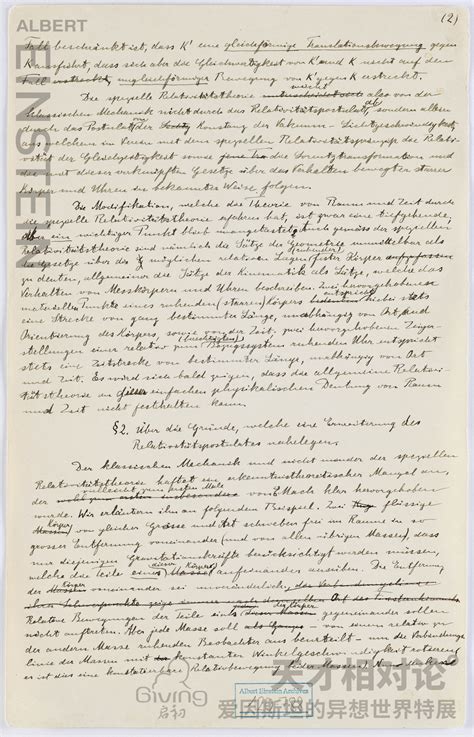 ALBERT
EINSTEIN
(2)
Fall beschränkt ist, dass K' eine gleichförmige Translationsbewegung gegen
K ausführt, dass sich aber die Gleichwertigkeit von K' und K nicht auf den
Fall ungleichförmiger Bewegung von K' gegen K erstreckt.
Die spezielle Relativitätstheorie weicht also von der
klassischen Mechanik nicht durch das Relativitätspostulat ab, sondern allein
durch das Postulat der Konstanz der Vakuum-Lichtgeschwindigkeit,
aus welchem im Verein mit dem speziellen Relativitätsprinzip die Relati-
vität der Gleichzeitigkeit sowie die Lorentztransformation und
die mit dieser verknüpften Gesetze über das Verhalten bewegter starrer
Körper und Uhren in bekannter Weise folgen.
Die Modifikation, welche das Theorie von Raum und Zeit durch
die spezielle Relativitätstheorie erfahren hat, ist zwar eine tiefgehende;
aber ein wichtiger Punkt blieb unangetastet. Auch gemäss der speziellen
Relativitätstheorie sind nämlich die Sätze der Geometrie unmittelbar als
Gesetze über die möglichen relativen Lagen (ruhender) fester Körper
zu deuten, allgemeiner die Sätze der Kinematik als Sätze, welche das
Verhalten von Messkörpern und Uhren beschreiben. Zwei hervorgehobenen
materiellen Punkten eines ruhenden (starren) Körpers entspricht hiebei stets
eine Strecke von ganz bestimmter Länge, unabhängig von Ort und
Orientierung des Körpers sowie von der Zeit. Zwei hervorgehobenen Zeiger-
stellungen einer relativ zum (berechtigten) Bezugssystem ruhenden Uhr entspricht
stets eine Zeitstrecke von bestimmter Länge, unabhängig von Ort
und Zeit. Es wird sich bald zeigen, dass die allgemeine Relativi-
tätstheorie an dieser einfachen physikalischen Deutung von Raum
und Zeit nicht festhalten kann.
§2. Über die Gründe, welche eine Erweiterung des
Relativitätspostulates nahelegen.
Der klassischen Mechanik und nicht minder der speziellen
Relativitätstheorie haftet ein erkenntnistheoretischer Mangel an,
der vielleicht zum ersten Male von E. Mach klar hervorgehoben
wurde. Wir erläutern ihn am folgenden Beispiel. Zwei flüssige
Körper von gleicher Grösse und Art schweben frei im Raume in so
grosser Entfernung voneinander (und von allen übrigen Massen), dass
nur diejenigen Gravitationskräfte berücksichtigt werden müssen,
welche die Teile eines dieser Körper aufeinander ausüben. Die Entfernung
der Körper voneinander sei unveränderlich.
Relative Bewegungen der Teile eines der Körper gegeneinander sollen
nicht auftreten. Aber jede Masse soll – von einem relativ zu
der anderen Masse ruhenden Beobachter aus beurteilt – um die Verbindungs-
linie der Massen mit konstanter Winkelgeschwindigkeit rotieren
(es ist dies eine konstatierbare Relativbewegung beider Massen). Nun denken
Giving
启初
Albert Einstein Archives
天才相对论
爱因斯坦的异想世界特展